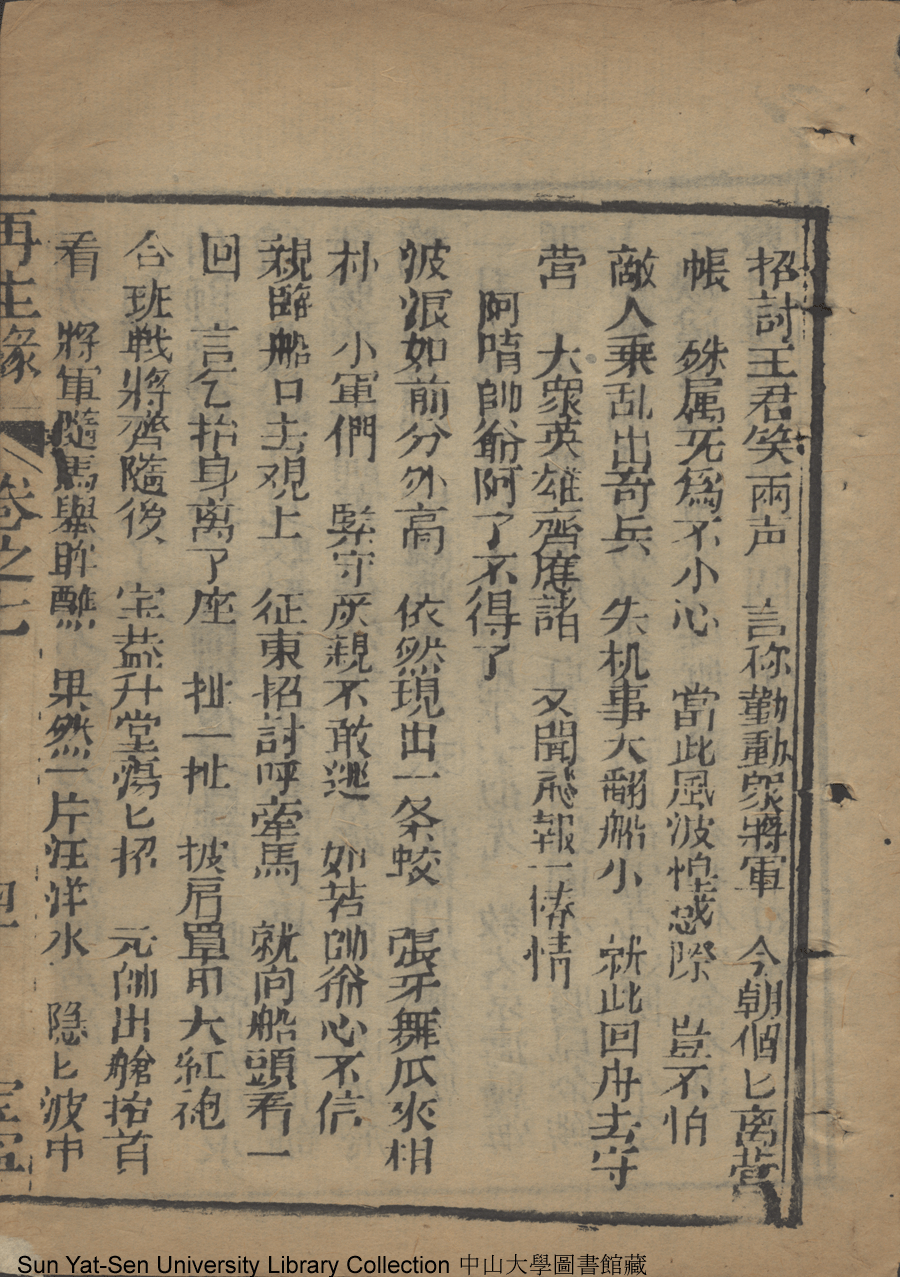 招討王君笑兩声　言称勤動眾將軍　今朝個匕离营
帳　殊属死為不小心　當此風波惶惑際　豈不怕
敵人乘乱出奇兵　失机事大翻船小　就此回舟去守
营　大眾英雄齊應諾　又聞飛報一樁情
阿唷帥爺阿了不得了
波浪如前分外高　依然現出一条蛟　張牙舞瓜來相
朴　小軍們　緊守灰親不敢逃　如若帥爺心不信
親臨船口去观上　征東招討呼牽馬　就向船頭看一
回　言乞抬身离了座　扯一扯　披肩單甲大紅袍
合班战將齊隨後　宝盖升堂蕩匕招　元帥出艙抬首
看　將軍隨馬舉眸醮　果然一片汪洋水　隐匕波中
再生緣　卷之七　四　宝寧
Sun Yat-Sen University Library Collection 中山大學圖書館藏